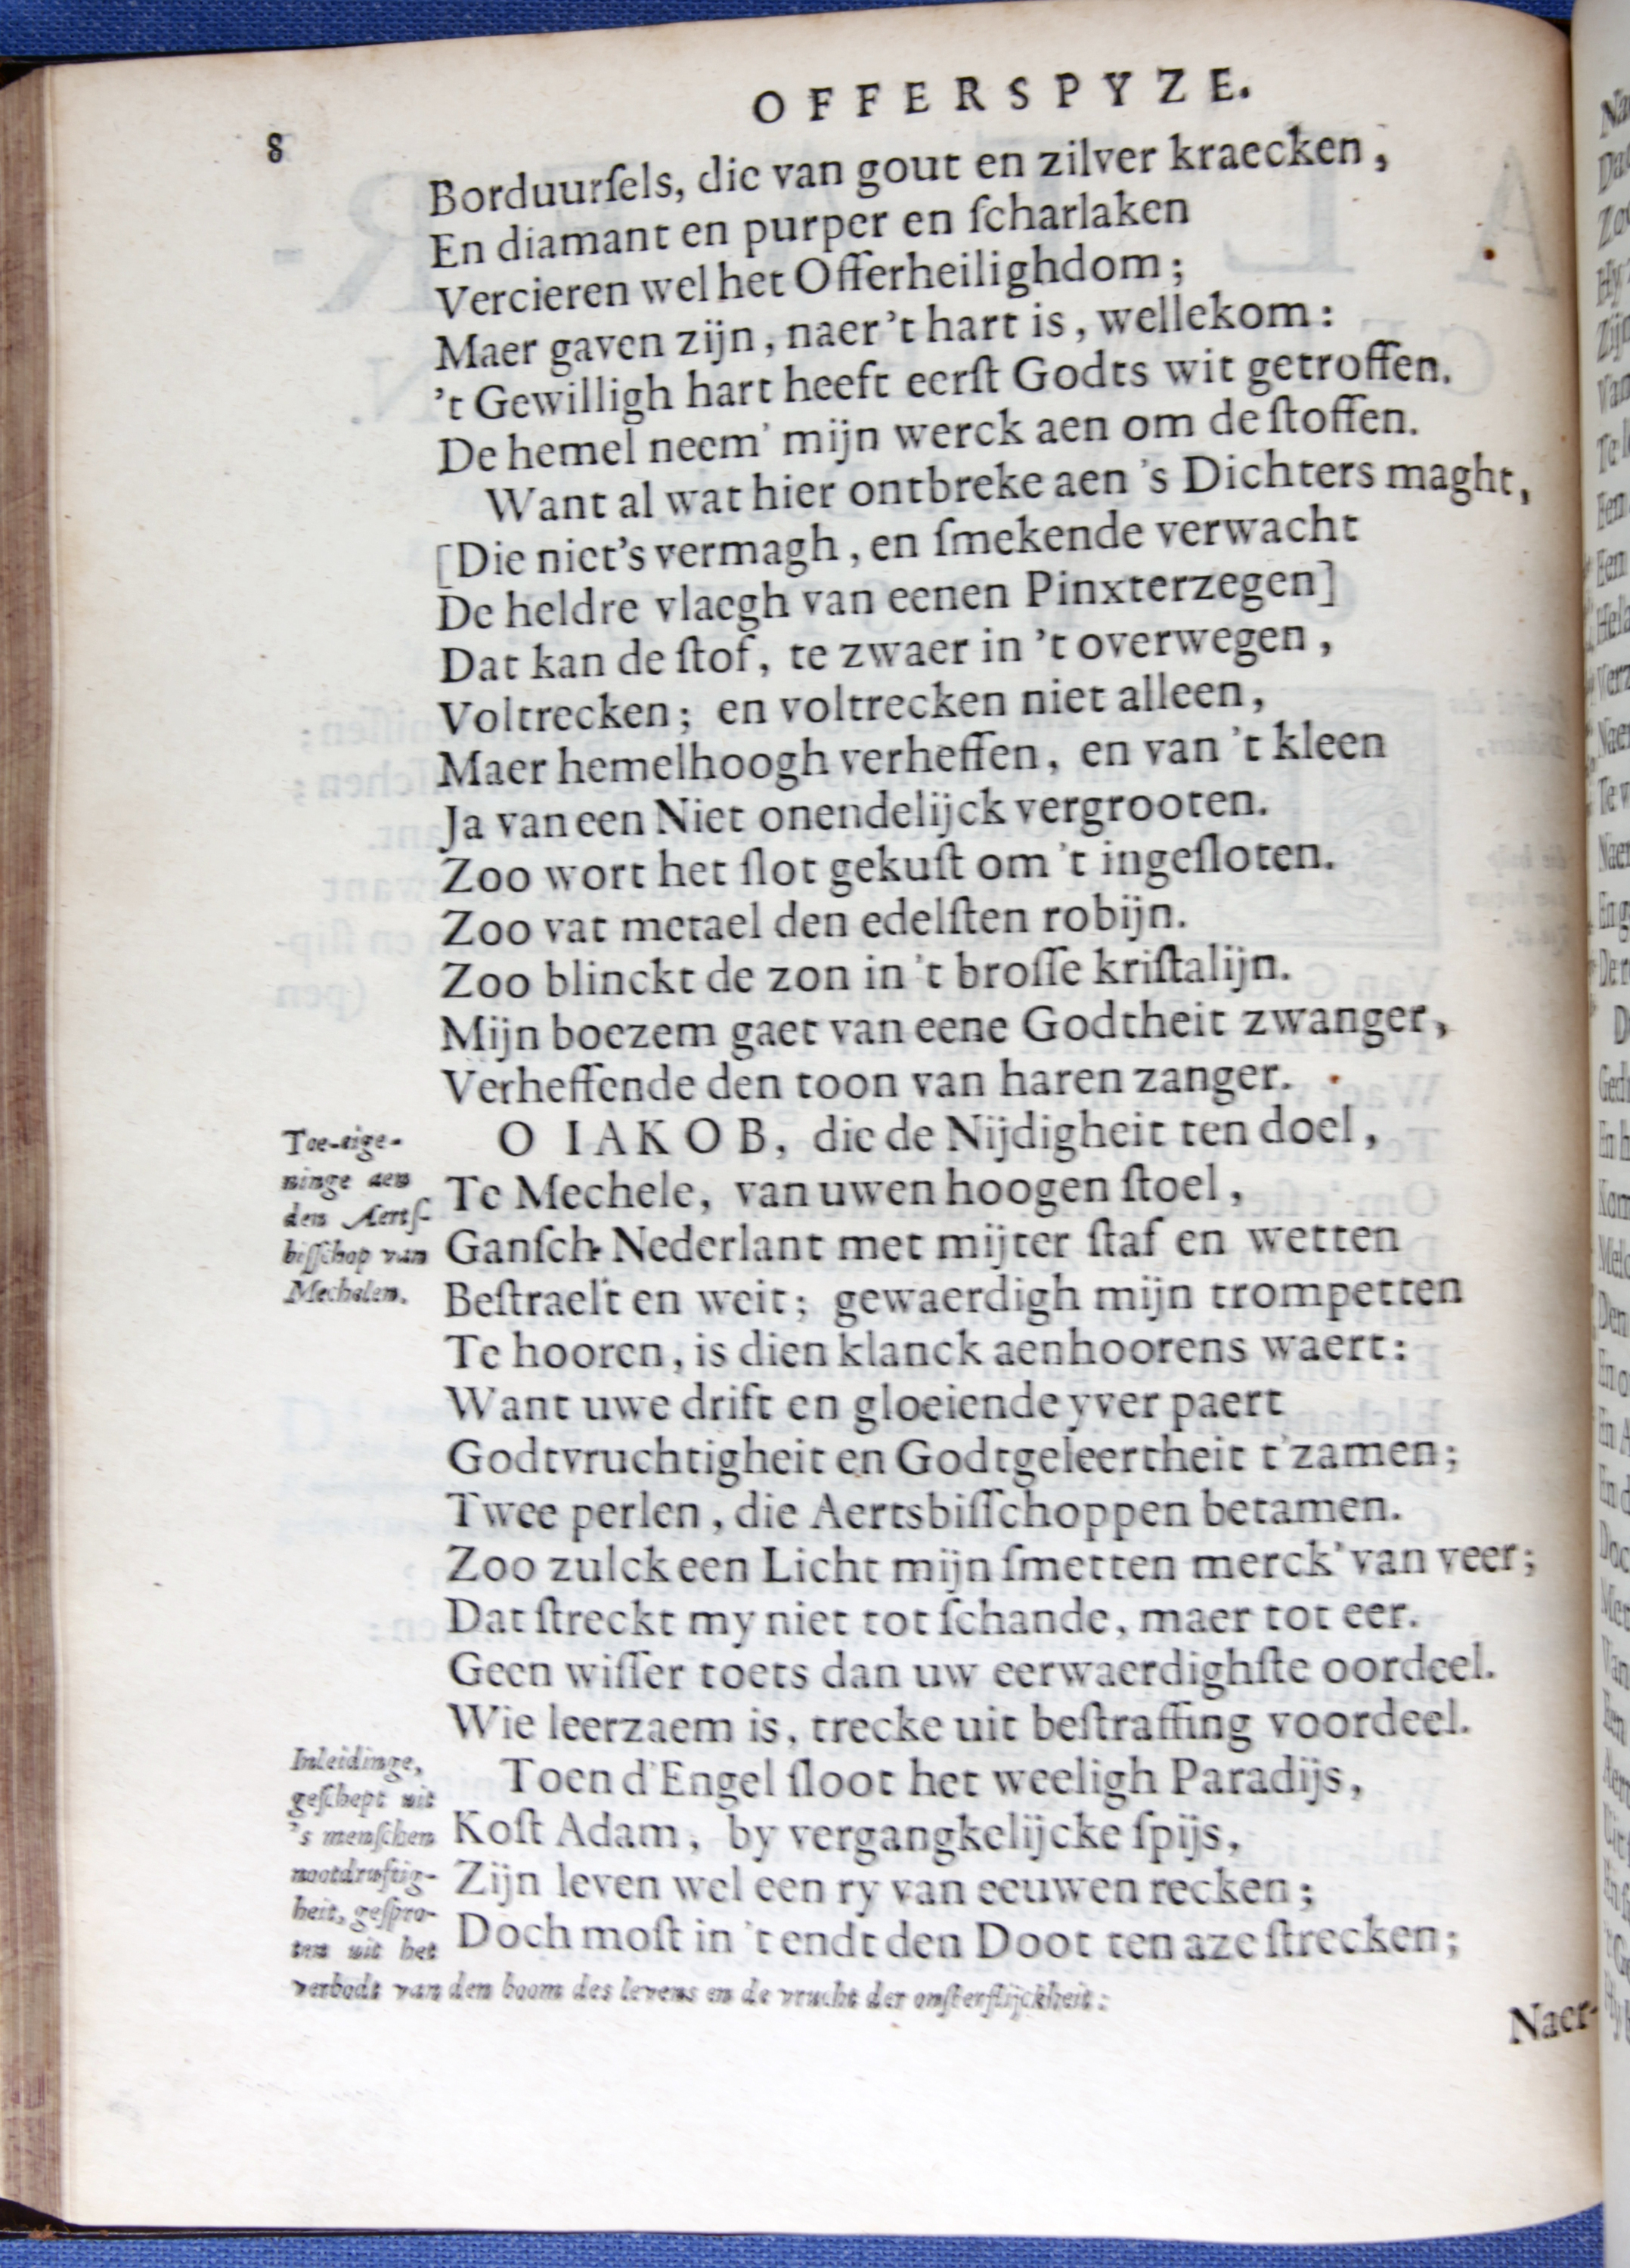 OFFERSPYZE.
8
Borduurſels, die van gout en zilver kraecken,
En diamant en purper en ſcharlaken
Vercieren wel het Offerheilighdom;
Maer gaven zijn, naer 't hart is, wellekom:
't Gewilligh hart heeft eerſt Godts wit getroffen.
De hemel neem' mijn werck aen om de ſtoffen.
Want al wat hier ontbreke aen 's Dichters maght,
[Die niet's vermagh, en ſmekende verwacht
De heldre vlaegh van eenen Pinxterzegen]
Dat kan de ſtof, te zwaer in 't overwegen,
Voltrecken; en voltrecken niet alleen,
Maer hemelhoogh verheffen, en van 't kleen
Ja van een Niet onendelijck vergrooten.
Zoo wort het ſlot gekuſt om 't ingeſloten.
Zoo vat metael den edelſten robijn.
Zoo blinckt de zon in 't broſſe kriſtalijn.
Mijn boezem gaet van eene Godtheit zwanger,
Verheffende den toon van haren zanger.
Toe-eige-
ninge aen
den Aertſ-
biſſchop van
Mechelen.
O IAKOB, die de Nijdigheit ten doel,
Te Mechele, van uwen hoogen ſtoel,
Ganſch Nederlant met mijter ſtaf en wetten
Beſtraelt en weit; gewaerdigh mijn trompetten
Te hooren, is dien klanck aenhoorens waert:
Want uwe drift en gloeiende yver paert
Godtvruchtigheit en Godtgeleertheit t'zamen;
Twee perlen, die Aertsbiſſchoppen betamen.
Zoo zulck een Licht mijn ſmetten merck' van veer;
Dat ſtreckt my niet tot ſchande, maer tot eer.
Geen wiſſer toets dan uw eerwaerdighſte oordeel.
Wie leerzaem is, trecke uit beſtraffing voordeel.
Inleidinge,
geſchept uit
's menſchen
nootdruftig-
heit, geſpro-
ten uit het
verbodt van den boom des levens en de vrucht der onſterflijckheit:
Toen d'Engel ſloot het weeligh Paradijs,
Koſt Adam, by vergangkelijcke ſpijs,
Zijn leven wel een ry van eeuwen recken;
Doch moſt in 't endt den Doot ten aze ſtrecken;
Naer-